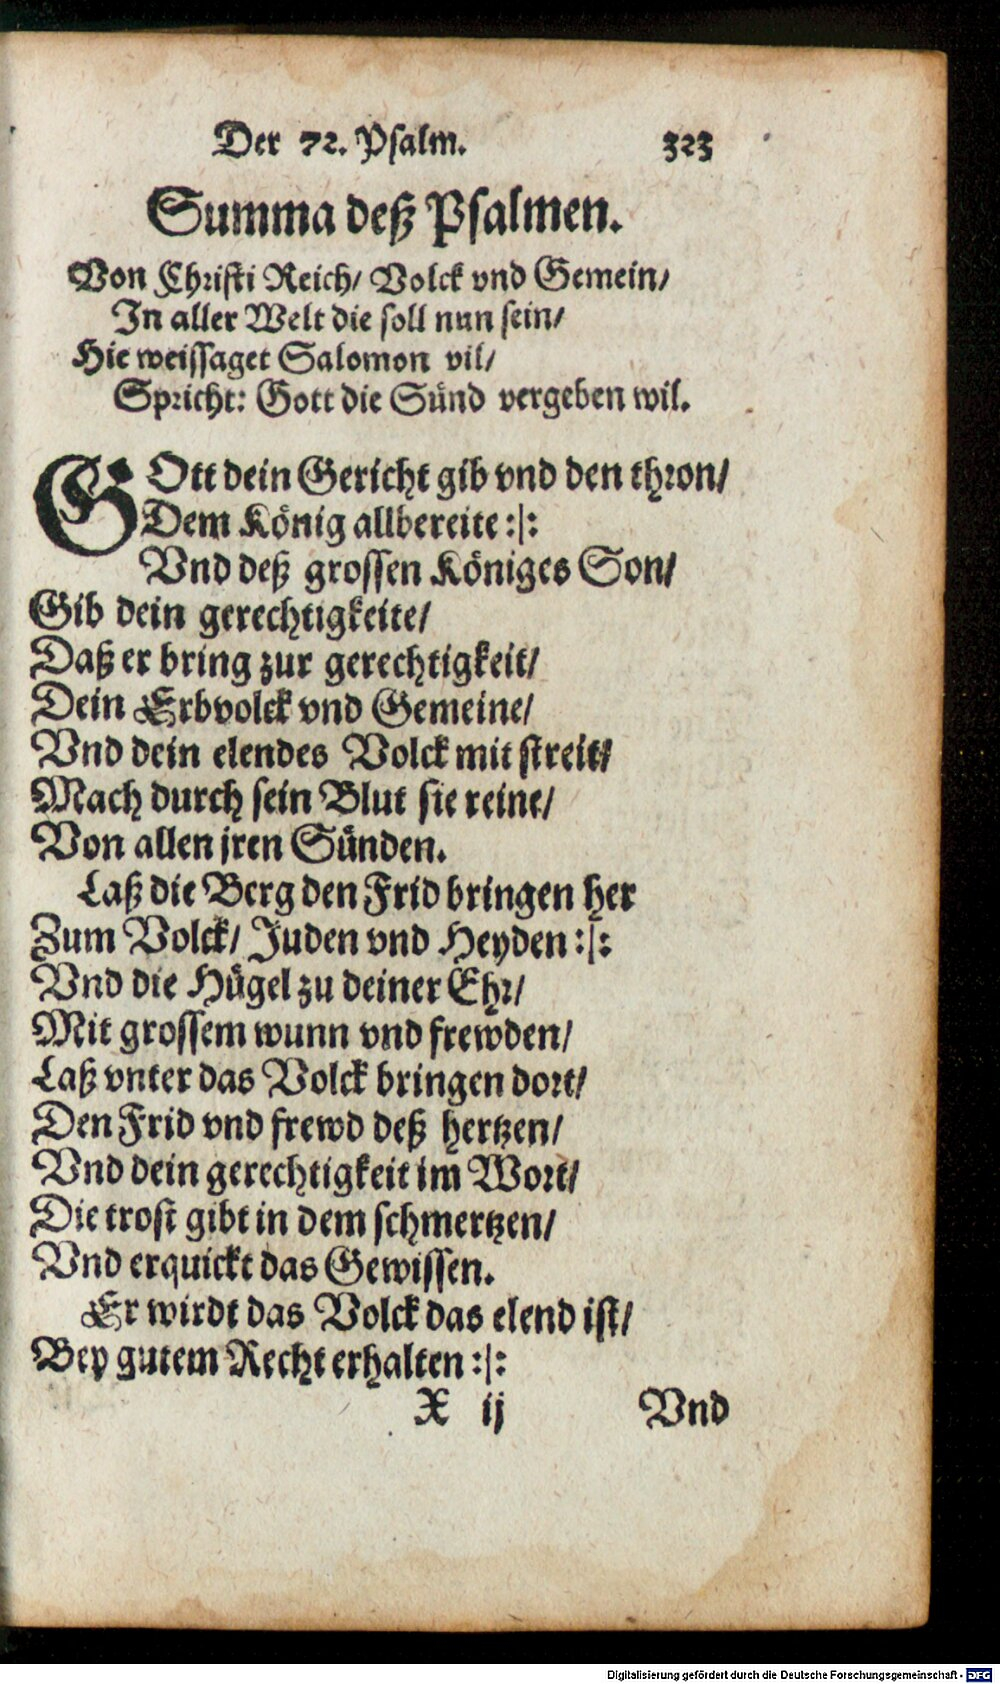 Der 72. Psalm. 323
Summa deß Psalmen.
Von Christi Reich/ Volck vnd Gemein/
In aller Welt die soll nun sein/
Hie weissaget Salomon vil/
Spricht: Gott die Sünd vergeben wil.
GOtt dein Gericht gib vnd den thron/
Dem König allbereite :|:
Vnd deß grossen Königes Son/
Gib dein gerechtigkeite/
Daß er bring zur gerechtigkeit/
Dein Erbvolck vnd Gemeine/
Vnd dein elendes Volck mit streit/
Mach durch sein Blut sie reine/
Von allen jren Sünden.
Laß die Berg den Frid bringen her
Zum Volck/ Juden vnd Heyden :|:
Vnd die Hügel zu deiner Ehr/
Mit grossem wunn vnd frewden/
Laß vnter das Volck bringen dort/
Den Frid vnd frewd deß hertzen/
Vnd dein gerechtigkeit im Wort/
Die trost gibt in dem schmertzen/
Vnd erquickt das Gewissen.
Er wirdt das Volck das elend ist/
Bey gutem Recht erhalten :|:
X ij Vnd
Digitalisierung gefördert durch die Deutsche Forschungsgemeinschaft - DFG